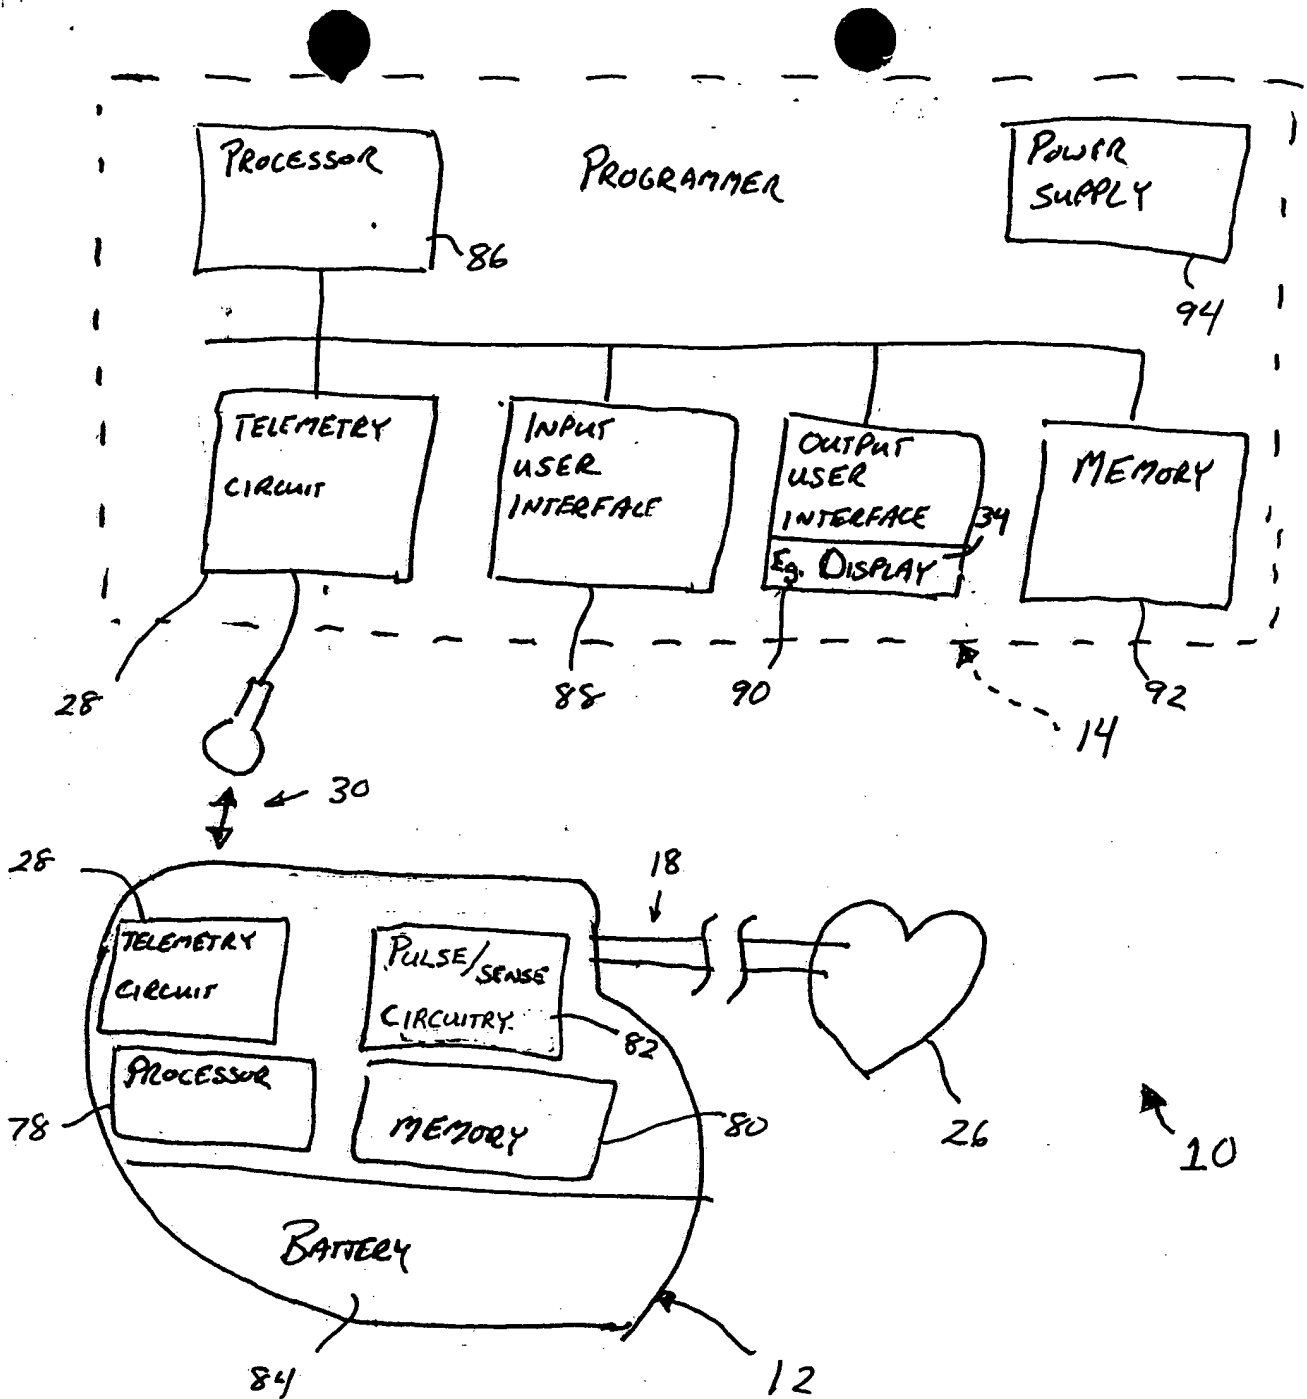 PROCESSOR
PROGRAMMER
POWER
SUPPLY
86
94
TELEMETRY
CIRCUIT
INPUT
USER
INTERFACE
OUTPUT
USER
INTERFACE
34
Eg. DISPLAY
MEMORY
28
88
90
92
14
30
28
18
TELEMETRY
CIRCUIT
PULSE/SENSE
CIRCUITRY
82
PROCESSOR
78
MEMORY
80
26
10
BATTERY
84
12